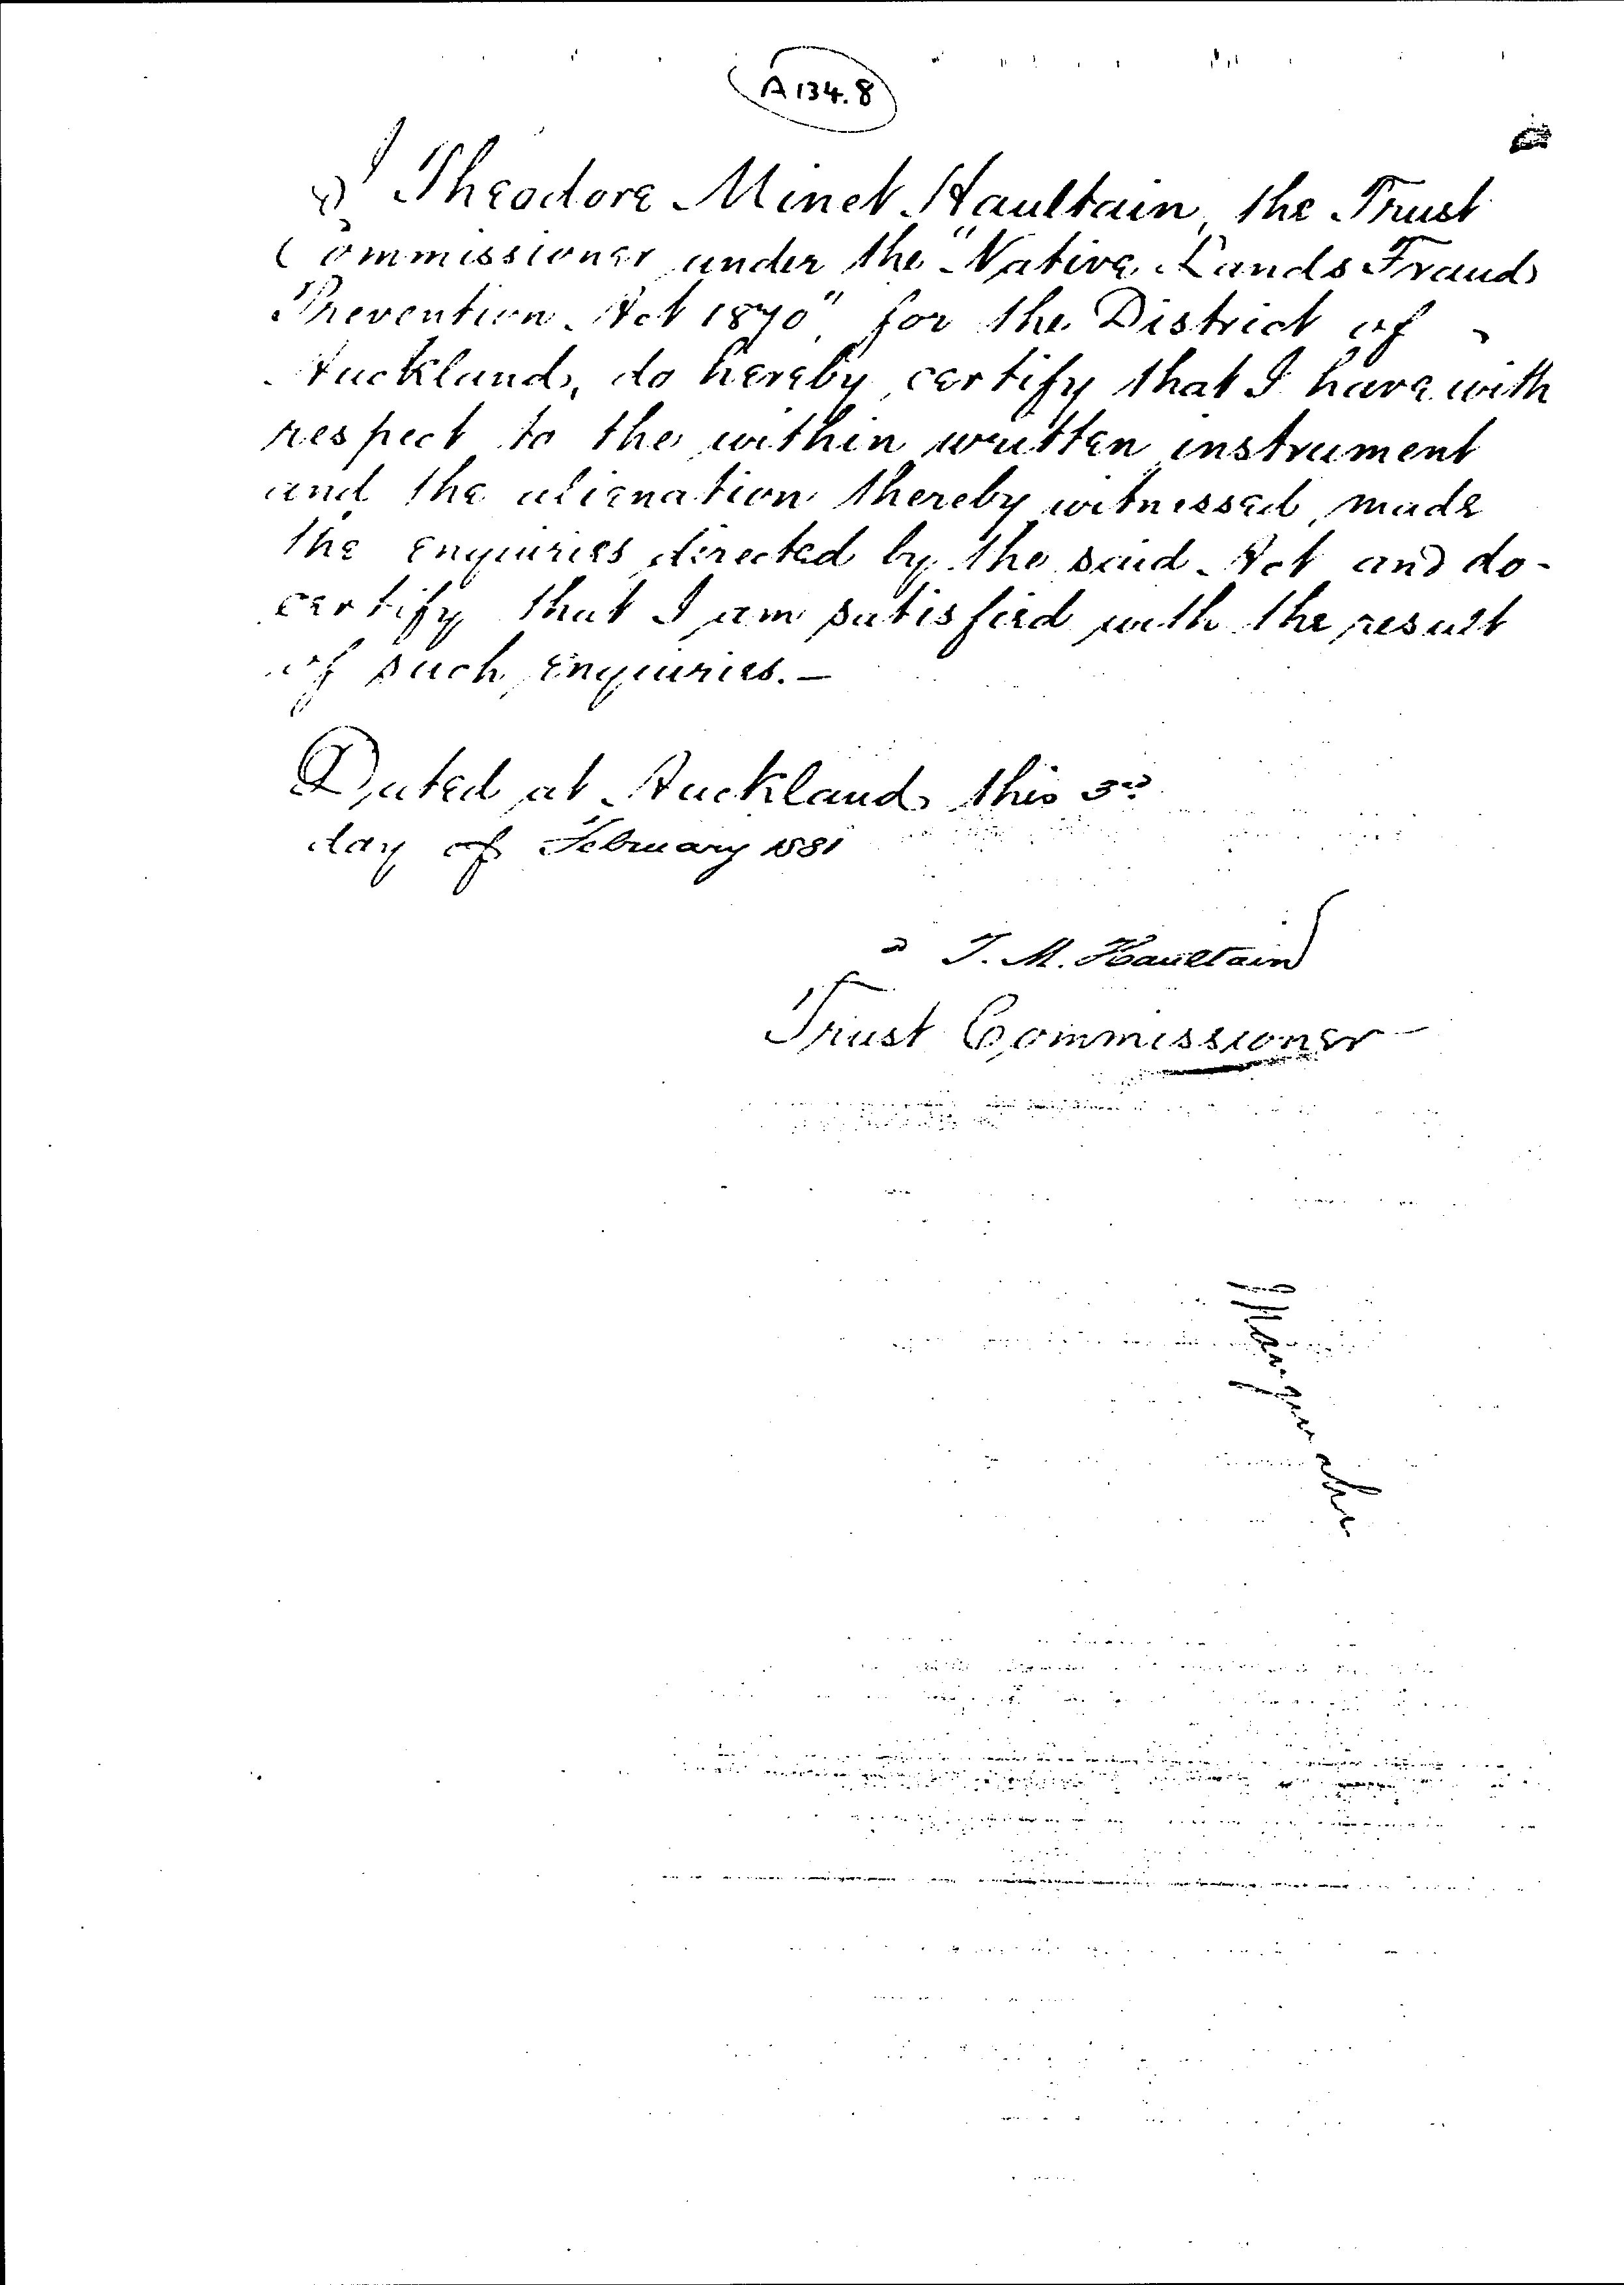 A134.8
I Theodore Minet Haultain, the Trust
Commissioner under the "Native Lands Frauds
Prevention Act 1870", for the District of
Auckland, do hereby certify that I have with
respect to the within written instrument
and the alienation thereby witnessed, made
the enquiries directed by the said Act and do
certify that I am satisfied with the result
of such enquiries. —
Dated at Auckland this 3rd
day of February 1881
T. M. Haultain
Trust Commissioner